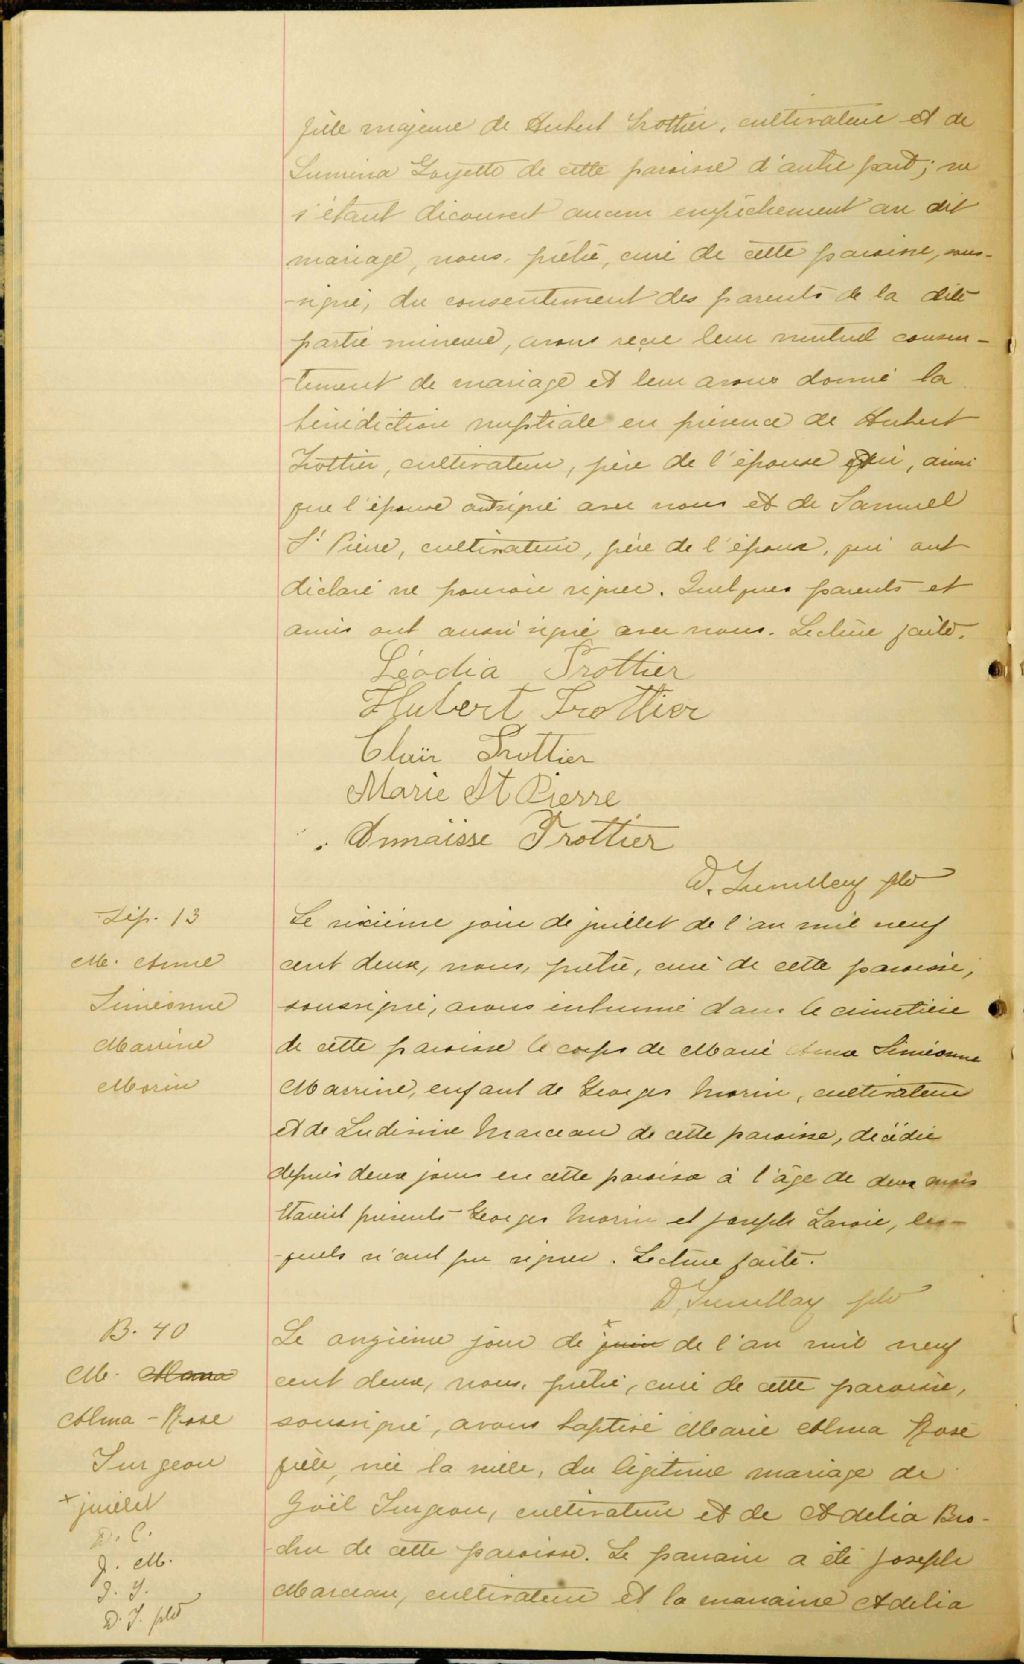 fille majeure de Hubert Trottier, cultivateur et de
Lumina Goyette de cette paroisse d'autre part; ne
s'étant découvert aucun empêchement au dit
mariage, nous, prêtre, curé de cette paroisse, sous-
-signé, du consentement des parents de la dite
partie mineure, avons reçu leur mutuel consen-
-tement de mariage et leur avons donné la
bénédiction nuptiale en présence de Hubert
Trottier, cultivateur, père de l'épouse qui, ainsi
que l'épouse a signé avec nous et de Samuel
St Pierre, cultivateur, père de l'époux, qui ont
déclaré ne pouvoir signer. Quelques parents et
amis ont aussi signé avec nous. Lecture faite.
Léodia Trottier
Hubert Trottier
Clair Trottier
Marie St Pierre
Annaïsse Trottier
ptre
Sép. 13
M. Anne
Siméonne
Marrine
Morin
Le sixième jour de juillet de l'an mil neuf
cent deux, nous, prêtre, curé de cette paroisse,
soussigné, avons inhumé dans le cimetière
de cette paroisse le corps de Marie Anne Siméonne
Marrine, enfant de Georges Morin, cultivateur
et de Ludivine Marceau de cette paroisse, décédée
depuis deux jours en cette paroisse à l'âge de deux mois
Etaient présents Georges Morin et Joseph Lavoie, les-
-quels n'ont pu signer. Lecture faite.
ptre
B. 40
M. Mona
Alma-Rose
Turgeon
+ juillet
D. C.
J. M.
J. T.
D. T. ptre
Le onzième jour de + juin de l'an mil neuf
cent deux, nous, prêtre, curé de cette paroisse,
soussigné, avons baptisé Marie Alma Rose
fille, née la veille, du légitime mariage de
Joël Turgeon, cultivateur et de Adelia Bro-
-chu de cette paroisse. Le parrain a été Joseph
Marceau, cultivateur et la marraine Adelia